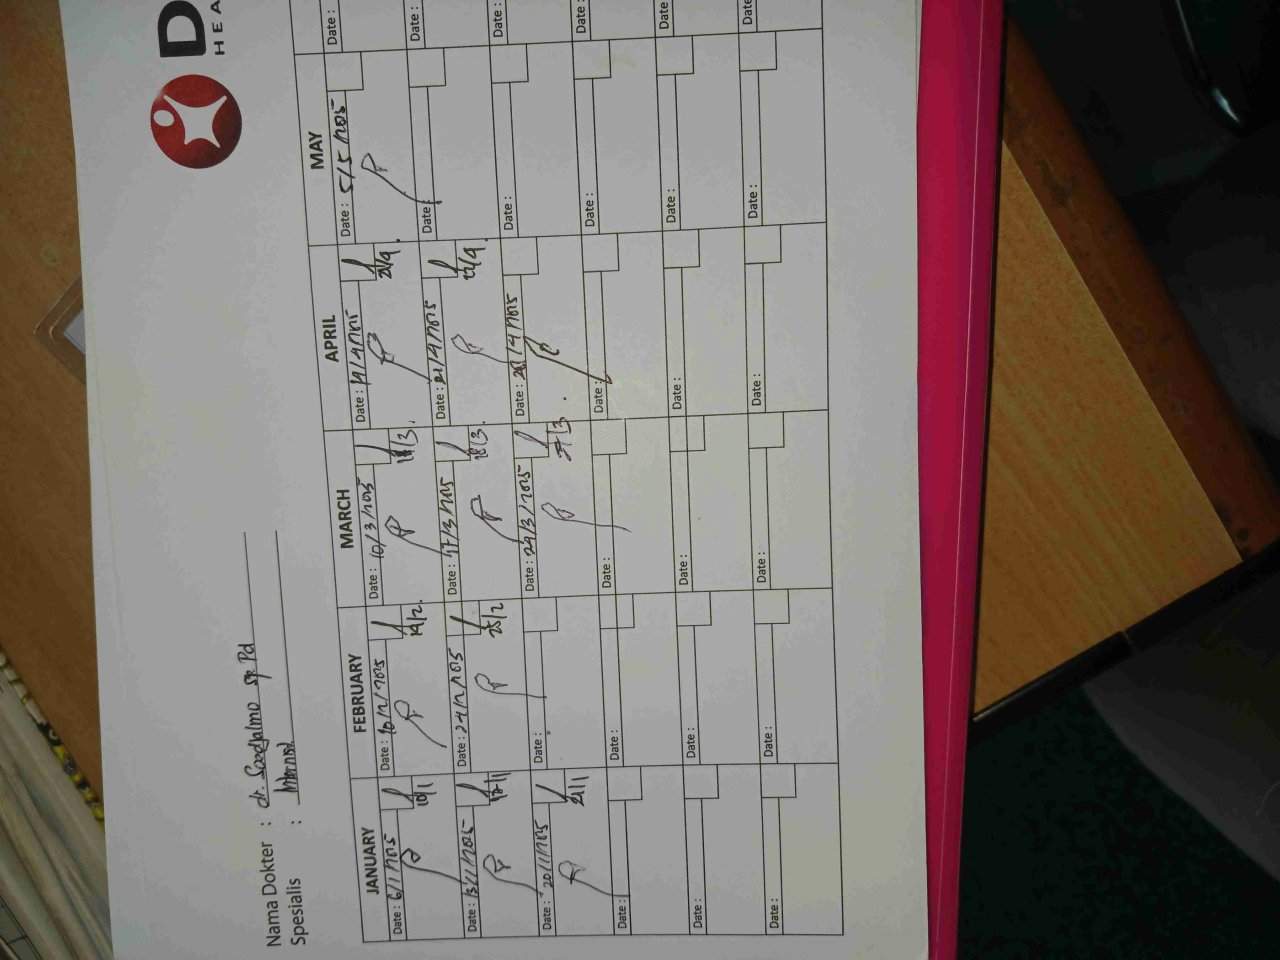 D
HEA
Nama Dokter : dr. Soedjalmo Sp Pd
Spesialis : Internal
JANUARY FEBRUARY MARCH APRIL MAY
Date : 6/1/2025 Date : 10/2/2025 Date : 10/3/2025 Date : 14/4/2025 Date : 5/5/2025 Date :
10/1 14/2 14/3 21/4
Date : 13/1/2025 Date : 24/2/2025 Date : 17/3/2025 Date : 21/4/2025 Date : Date :
17/1 25/2 18/3 22/4
Date : 20/1/2025 Date : Date : 24/3/2025 Date : 28/4/2025 Date : Date :
21/1 27/3
Date : Date : Date : Date : Date : Date :
Date : Date : Date : Date : Date : Date :
Date : Date : Date : Date : Date : Date :